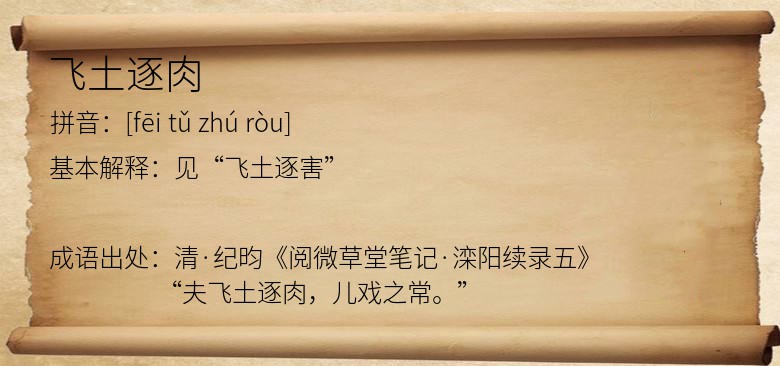 飞土逐肉
拼音：[fēi tǔ zhú ròu]
基本解释：见“飞土逐害”
成语出处：清·纪昀《阅微草堂笔记·滦阳续录五》
“夫飞土逐肉，儿戏之常。”